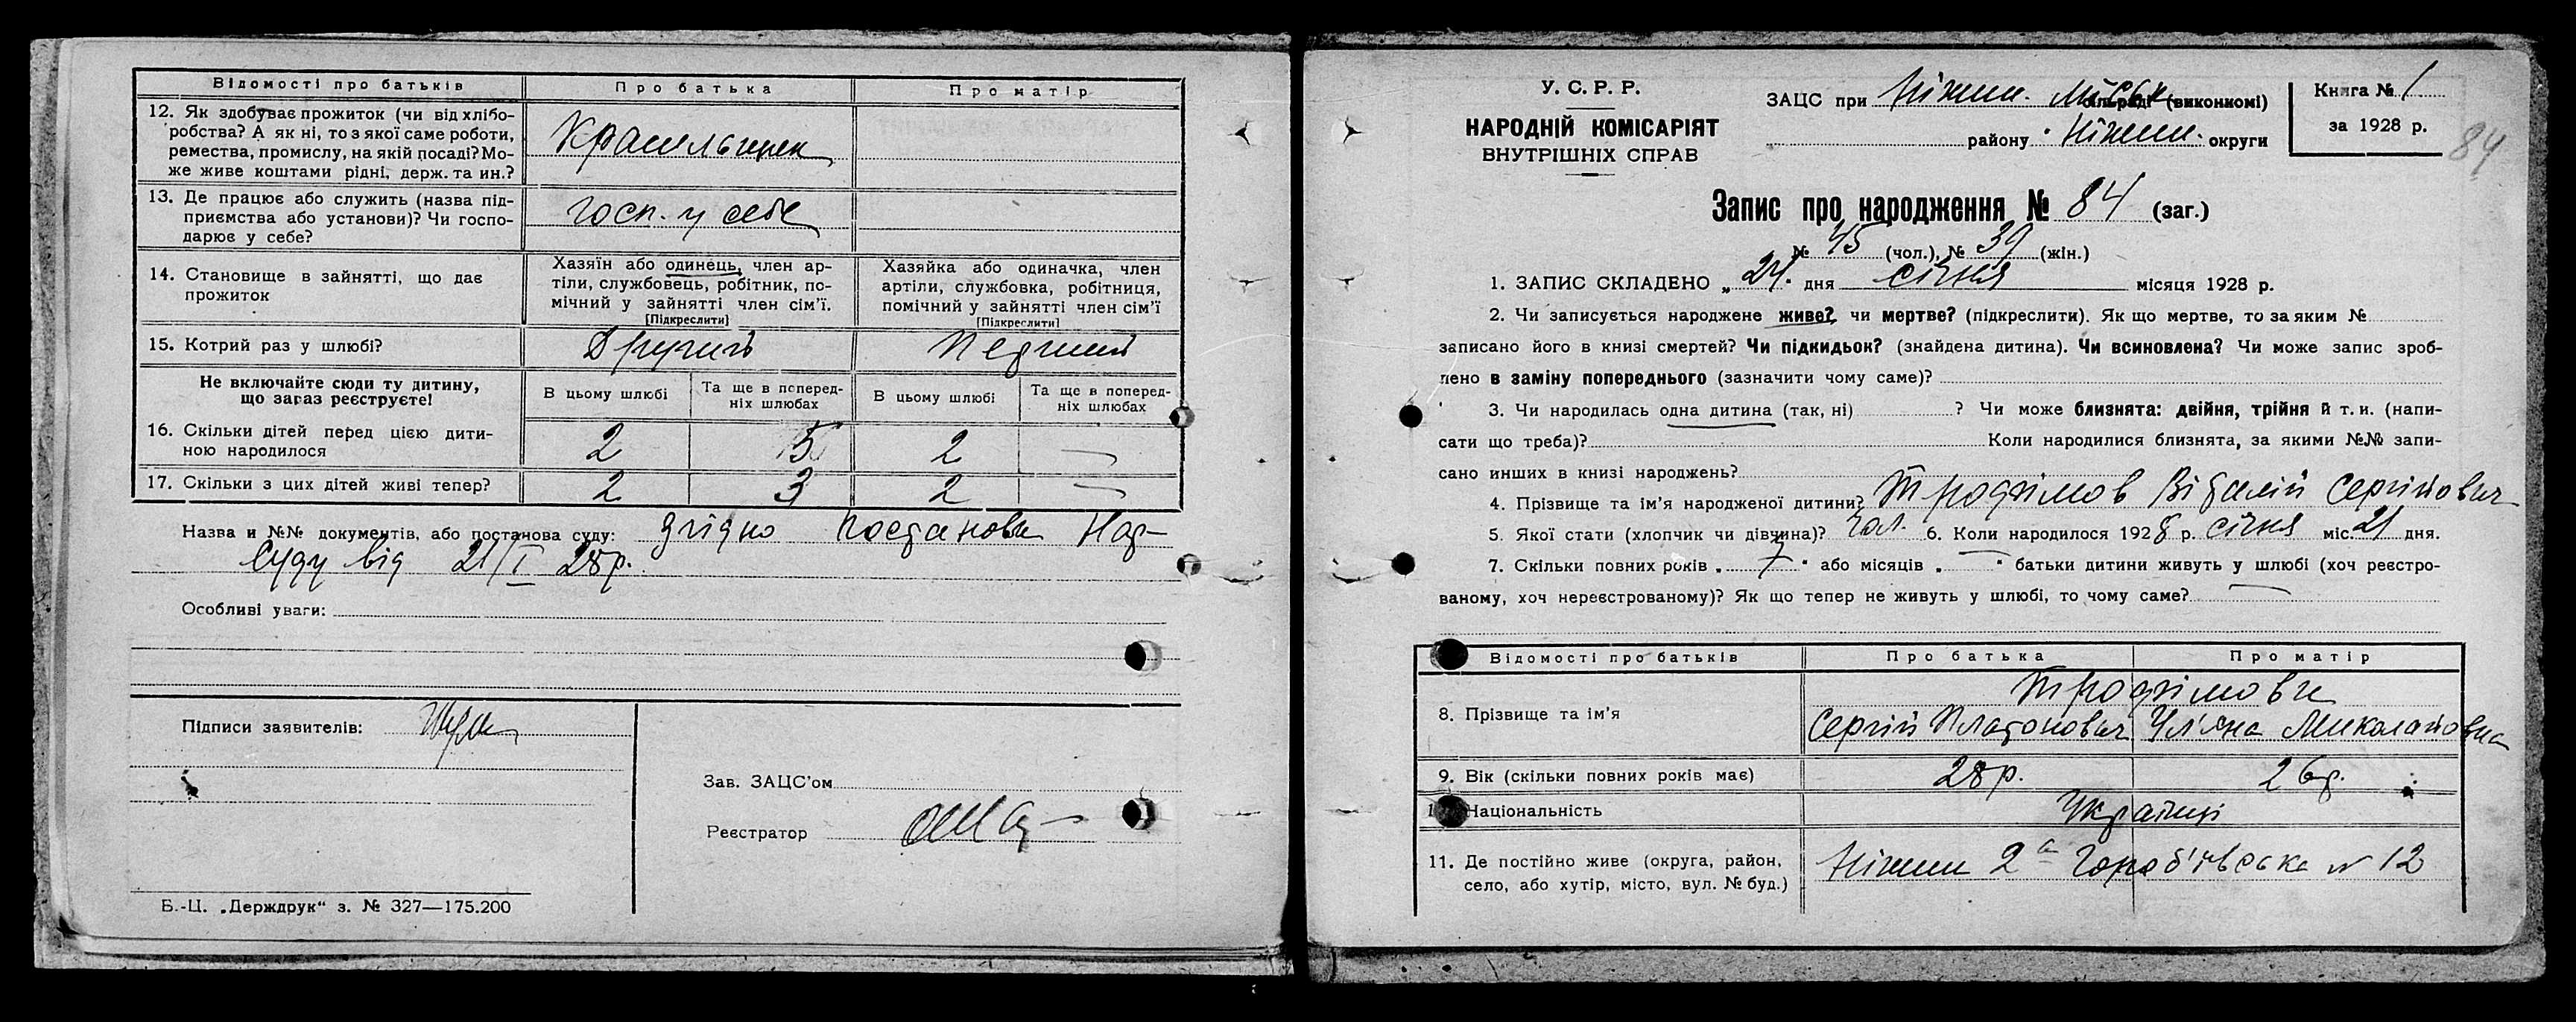 Відомості про батьків Про батька Про матір
12. Як здобуває прожиток (чи від хлібо-
робства? А як ні, то з якої саме роботи,
ремества, промислу, на якій посаді? Мо-
же живе коштами рідні, держ. та ин.?
Красильщик
13. Де працює або служить (назва під-
приємства або установи)? Чи госпо-
дарює у себе?
Госп. у себе
14. Становище в зайнятті, що дає
прожиток
Хазяїн або одинець, член ар-
тіли, службовець, робітник, по-
мічний у зайнятті член сім'ї.
[Підкреслити]
Хазяйка або одиначка, член
артіли, службовка, робітниця,
помічний у зайнятті член сім'ї
[Підкреслити]
15. Котрий раз у шлюбі? Другий Перший
Не включайте сюди ту дитину,
що зараз реєструєте!
В цьому шлюбі
Та ще в поперед-
ніх шлюбах
В цьому шлюбі
Та ще в поперед-
ніх шлюбах
16. Скільки дітей перед цією дити-
ною народилося
2 5 2 —
17. Скільки з цих дітей живі тепер? 2 3 2 —
Назва и №№ документів, або постанова суду: згідно постанови Нар-
Суду від 21/I 28р.
Особливі уваги:
Підписи заявителів:
Зав. ЗАЦС'ом
Реєстратор
Б.-Ц. „Держдрук“ з. № 327—175.200
У. С. Р. Р.
НАРОДНІЙ КОМІСАРІЯТ
ВНУТРІШНІХ СПРАВ
ЗАЦС при Ніжин. Міськ сільраді (виконкомі)
району Ніжин. округи
Книга № 1
за 1928 р.
84
Запис про народження № 84 (заг.)
№ 45 (чол.), № 39 (жін.)
1. ЗАПИС СКЛАДЕНО „24“ дня січня місяця 1928 р.
2. Чи записується народжене живе? чи мертве? (підкреслити). Як що мертве, то за яким №
записано його в книзі смертей? Чи підкидьок? (знайдена дитина). Чи всиновлена? Чи може запис зроб-
лено в заміну попереднього (зазначити чому саме)?
3. Чи народилась одна дитина (так, ні) ? Чи може близнята: двійня, трійня й т. и. (напи-
сати що треба)? Коли народилися близнята, за якими №№ запи-
сано инших в книзі народжень?
4. Прізвище та ім'я народженої дитини? Трофімов Віталій Сергійович
5. Якої стати (хлопчик чи дівчина)? чол. 6. Коли народилося 1928 р. січня міс. 21 дня.
7. Скільки повних років „ 7 “ або місяців „ — “ батьки дитини живуть у шлюбі (хоч реєстро-
ваному, хоч нереєстрованому)? Як що тепер не живуть у шлюбі, то чому саме? —
Відомості про батьків Про батька Про матір
8. Прізвище та ім'я
Трофімови
Сергій Платонович Уляна Миколайовна
9. Вік (скільки повних років має) 28р. 26р.
Національність Українці
11. Де постійно живе (округа, район,
село, або хутір, місто, вул. № буд.)
Ніжин 2а Гороб'ївська № 12